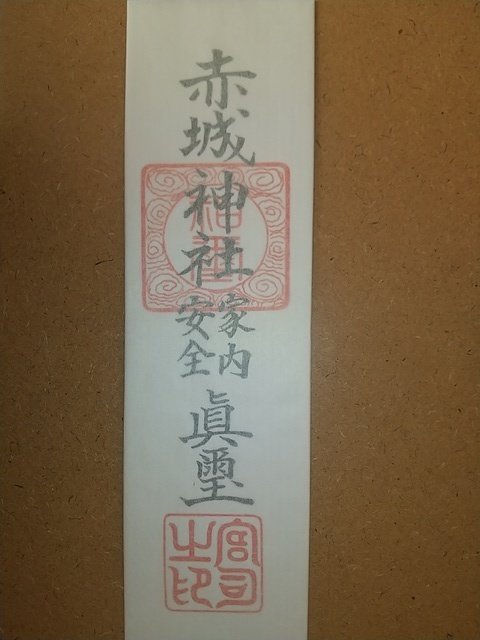 赤城神社
家内
安全
眞璽
宮司
之印